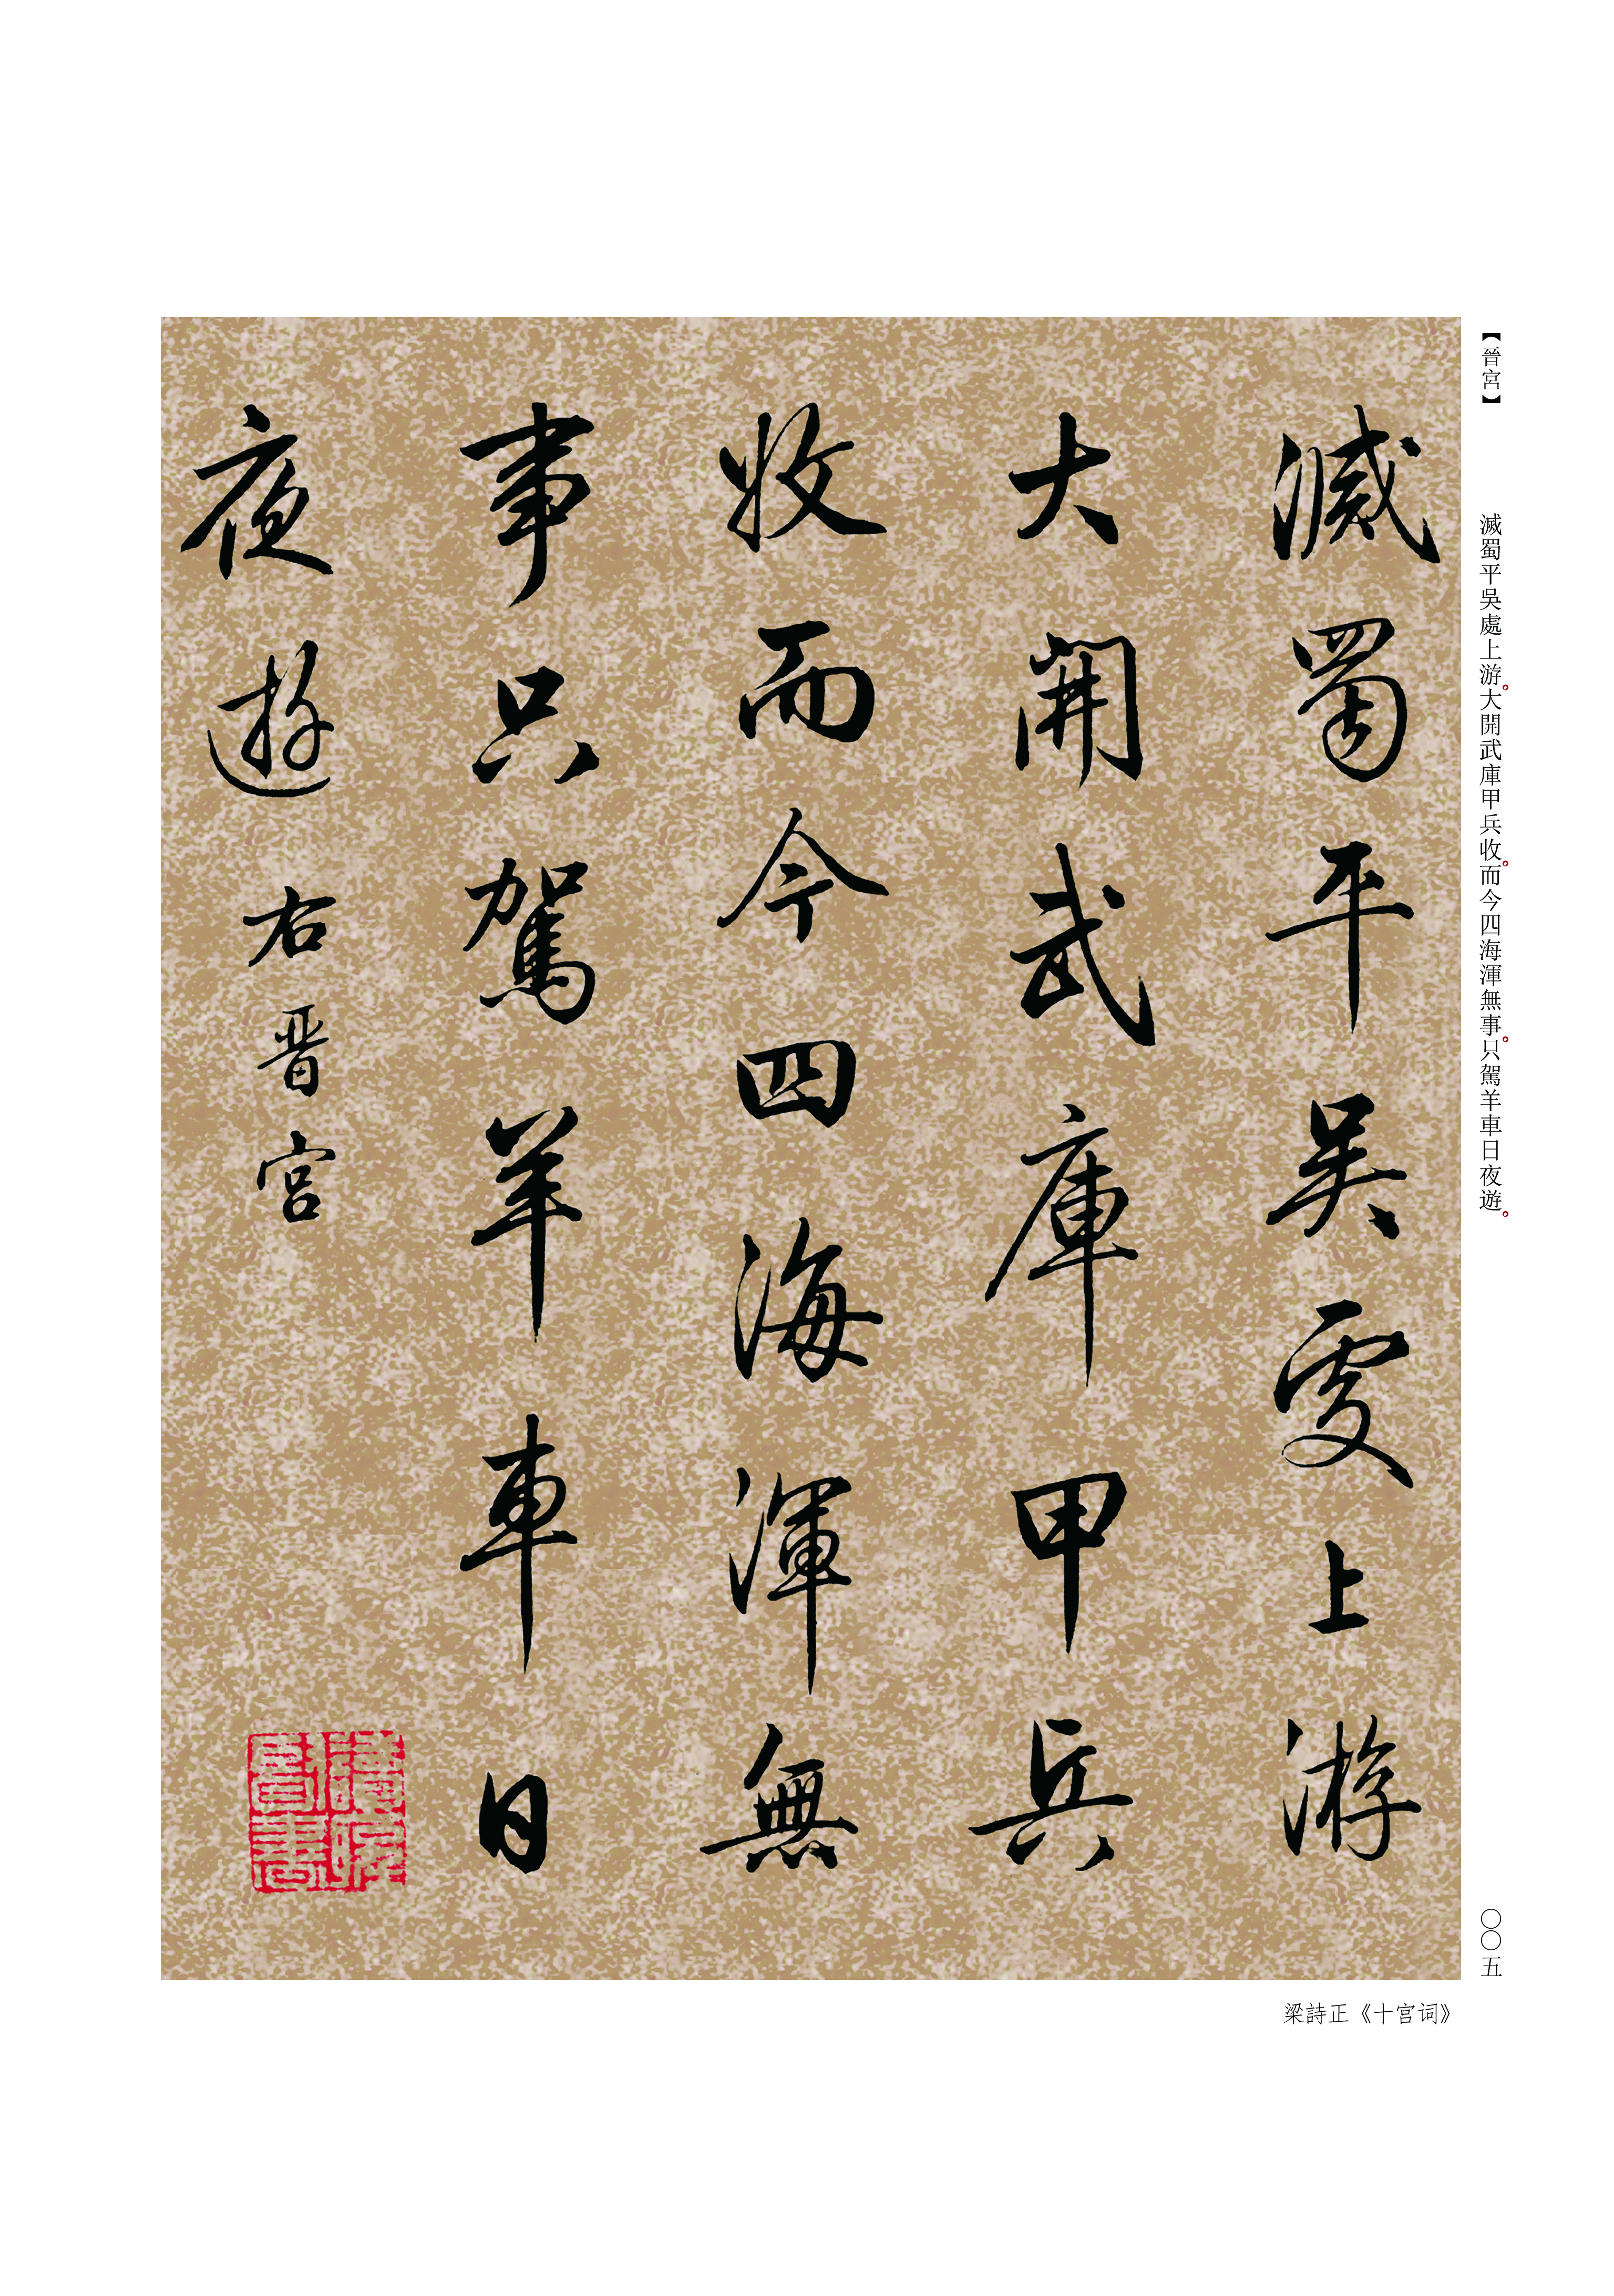 【晉宮】
滅蜀平吳處上游。大開武庫甲兵收。而今四海渾無事。只駕羊車日夜遊。
滅蜀平吳處上游
大開武庫甲兵
收而今四海渾無
事只駕羊車日
夜遊 右晋宮
〇〇五
梁詩正《十宫词》